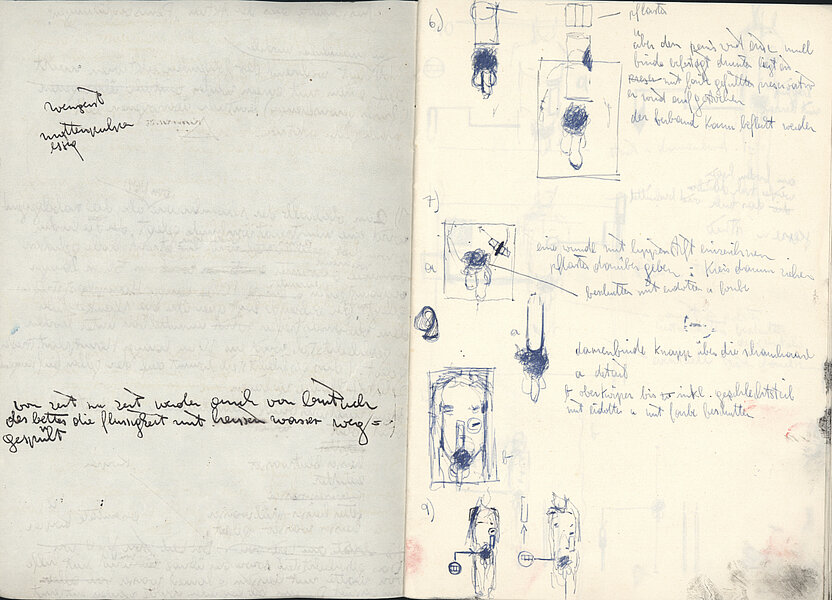 weingeist
essig
von zeit zu zeit werden auch vom leintuch
des bettes die flüssigkeit mit heissem wasser weg=
gespült
6)
pflaster
über dem penis wird eine mull
binde befestigt darunter liegt ein
mit farbe gefülltes preservativ
er wird aufgestochen
der verband kann befleckt werden
7)
eine wunde mit lippenstift einzeichnen
pflaster darüber geben : Kreis darum ziehen
beschütten mit eidotter u farbe
a
a
damenbinde knapp über die schamhaare
a detail
b oberkörper bis inkl. geschlechtsteil
mit eidotter u mit farbe beschütten
b
9)